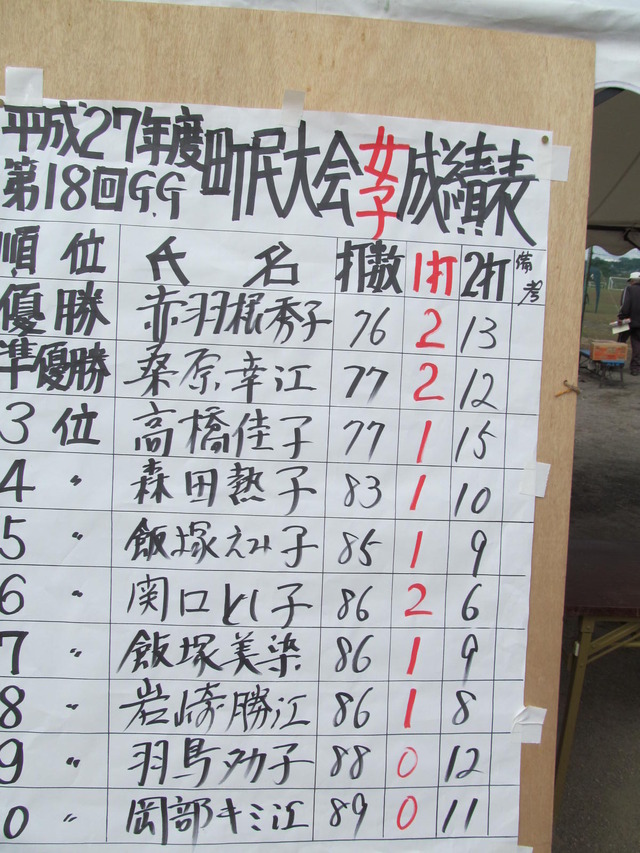 平成27年度
第18回G.G
町民大会女子成績表
順位 氏名 打数 1打 2打 備考
優勝 赤羽根秀子 76 2 13
準優勝 桑原幸江 77 2 12
3位 高橋佳子 77 1 15
4〃 森田熱子 83 1 10
5〃 飯塚えみ子 85 1 9
6〃 関口とし子 86 2 6
7〃 飯塚美染 86 1 9
8〃 岩崎勝江 86 1 8
9〃 羽鳥タカ子 88 0 12
0〃 岡部キミ江 89 0 11